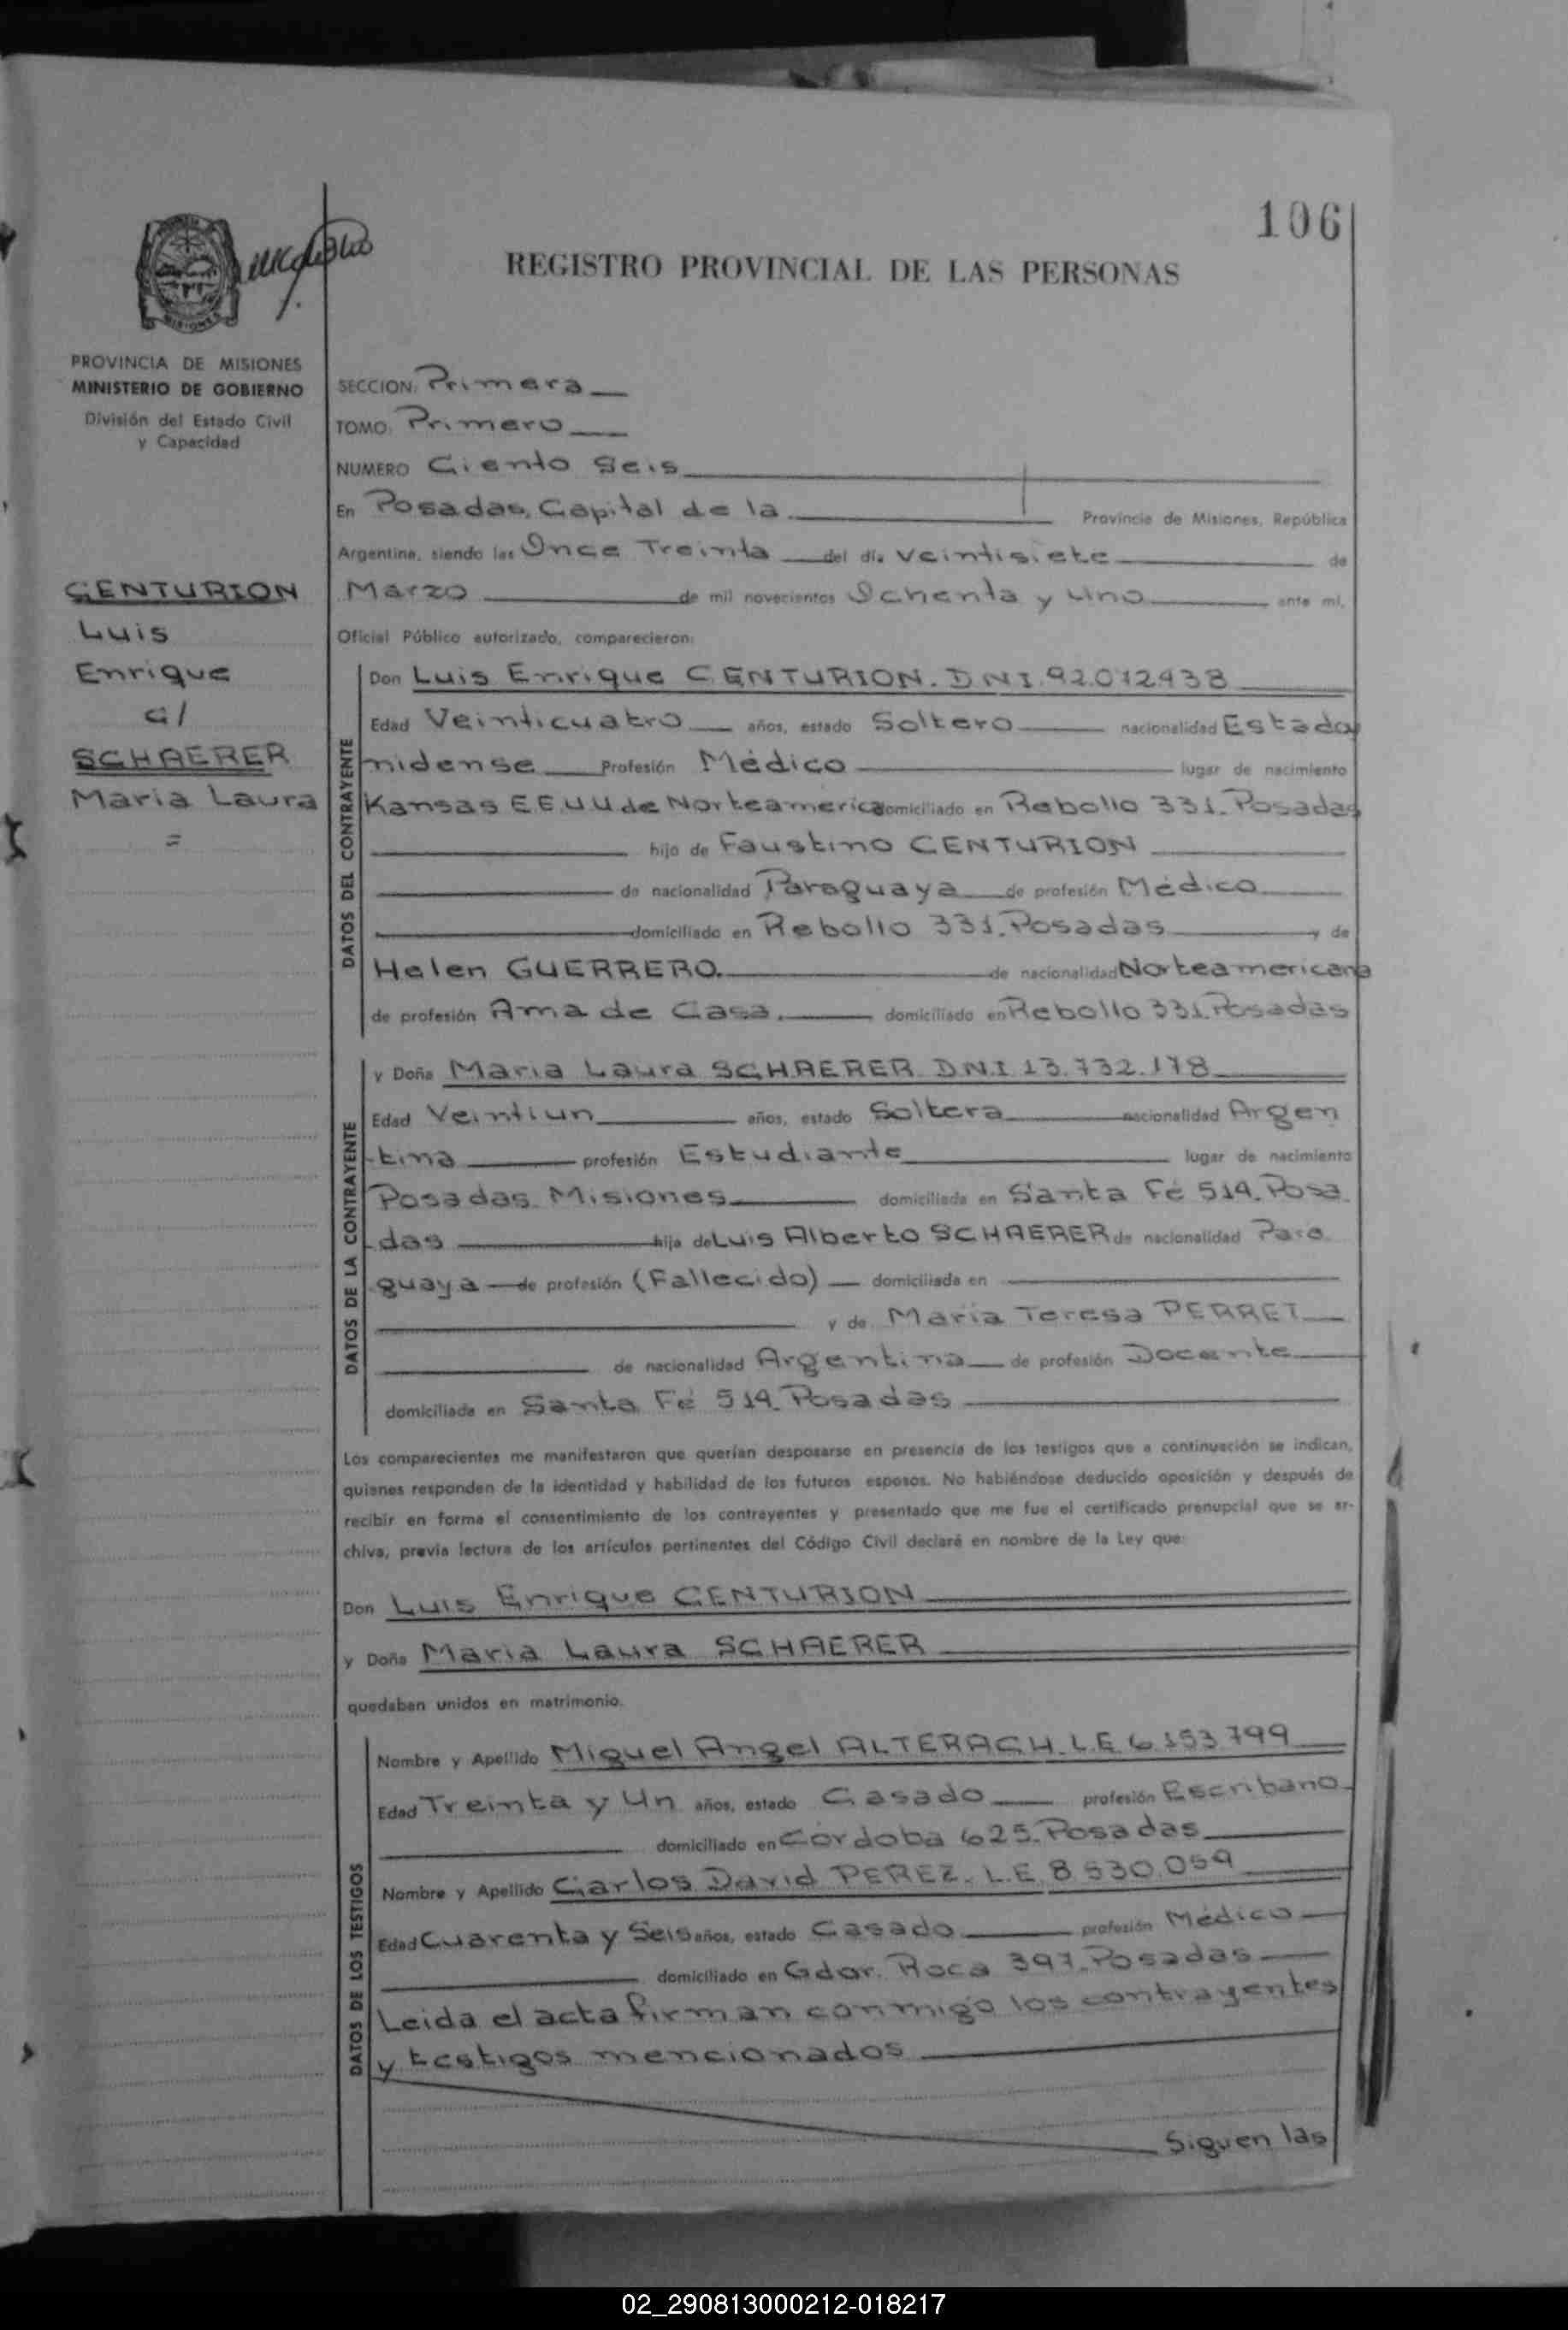 106
REGISTRO PROVINCIAL DE LAS PERSONAS
MISIONES
PROVINCIA DE MISIONES
MINISTERIO DE GOBIERNO
División del Estado Civil
y Capacidad
CENTURION
Luis
Enrique
c/
SCHAERER
Maria Laura
=
SECCION: Primera
TOMO: Primero
NUMERO Ciento Seis
En Posadas, Capital de la Provincia de Misiones, República
Argentina, siendo las Once Treinta del día veintisiete de
Marzo de mil novecientos Ochenta y Uno ante mí,
Oficial Público autorizado, comparecieron:
DATOS DEL CONTRAYENTE
Don Luis Enrique CENTURION. DNI.92.012.938
Edad Veinticuatro años, estado Soltero nacionalidad Estadou
nidense Profesión Médico lugar de nacimiento
Kansas E.E.U.U de Norteamerica domiciliado en Rebollo 331. Posadas
hijo de Faustino CENTURION
de nacionalidad Paraguaya de profesión Médico
domiciliado en Rebollo 331. Posadas y de
Helen GUERRERO. de nacionalidad Norteamericana
de profesión Ama de Casa. domiciliado en Rebollo 331. Posadas
DATOS DE LA CONTRAYENTE
y Doña Maria Laura SCHAERER DNI 13.732.178
Edad Veintiun años, estado Soltera nacionalidad Argen
tina profesión Estudiante lugar de nacimiento
Posadas. Misiones domiciliada en Santa Fé 514. Posa
das hija de Luis Alberto SCHAERER de nacionalidad Para
guaya de profesión (Fallecido) domiciliada en
y de Maria Teresa PERRET
de nacionalidad Argentina de profesión Docente
domiciliada en Santa Fé 514. Posadas
Los comparecientes me manifestaron que querían desposarse en presencia de los testigos que a continuación se indican,
quienes responden de la identidad y habilidad de los futuros esposos. No habiéndose deducido oposición y después de
recibir en forma el consentimiento de los contrayentes y presentado que me fue el certificado prenupcial que se ar-
chiva, previa lectura de los artículos pertinentes del Código Civil declaré en nombre de la Ley que:
Don Luis Enrique CENTURION
y Doña Maria Laura SCHAERER
quedaban unidos en matrimonio.
DATOS DE LOS TESTIGOS
Nombre y Apellido Miguel Angel ALTERACH. L.E 6.153.799
Edad Treinta y Un años, estado Casado profesión Escribano
domiciliado en Córdoba 625. Posadas
Nombre y Apellido Carlos David PEREZ. L.E. 8.530.059
Edad Cuarenta y Seis años, estado Casado profesión Médico
domiciliado en Gdor. Roca 397. Posadas
Leida el acta firman conmigo los contrayentes
y testigos mencionados
Siguen las
02_290813000212-018217